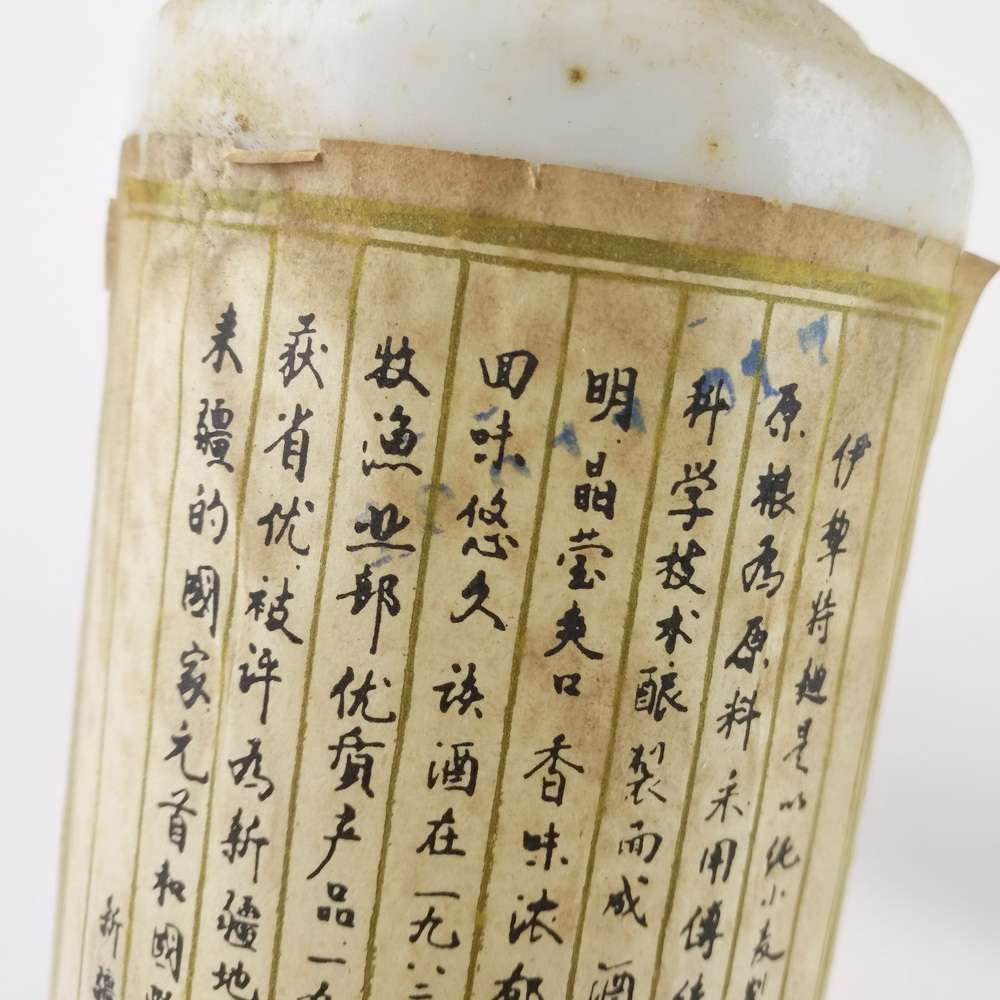 伊犁特麯是以纯小麦
原粮為原料采用傳统
科学技术酿製而成酒
明晶莹爽口香味浓郁
回味悠久该酒在一九八二
牧渔业部优质产品一九
获省优被评為新疆地
来疆的國家元首和國际
新疆